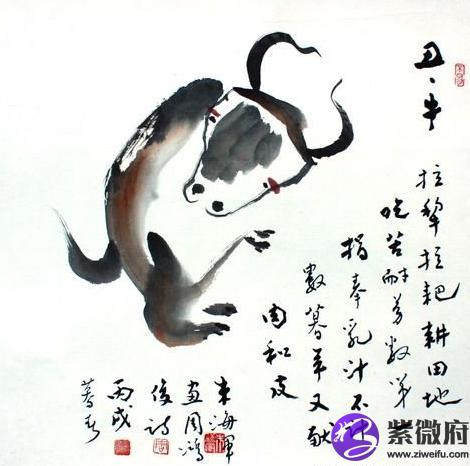 丑、牛
拉犁拉耙耕田地
吃苦耐劳数第
捐奉乳汁不计
數暮年又献
肉和皮
朱海
画周鸿
俊诗
丙戌
暮春
紫微府
www.ziweifu.com